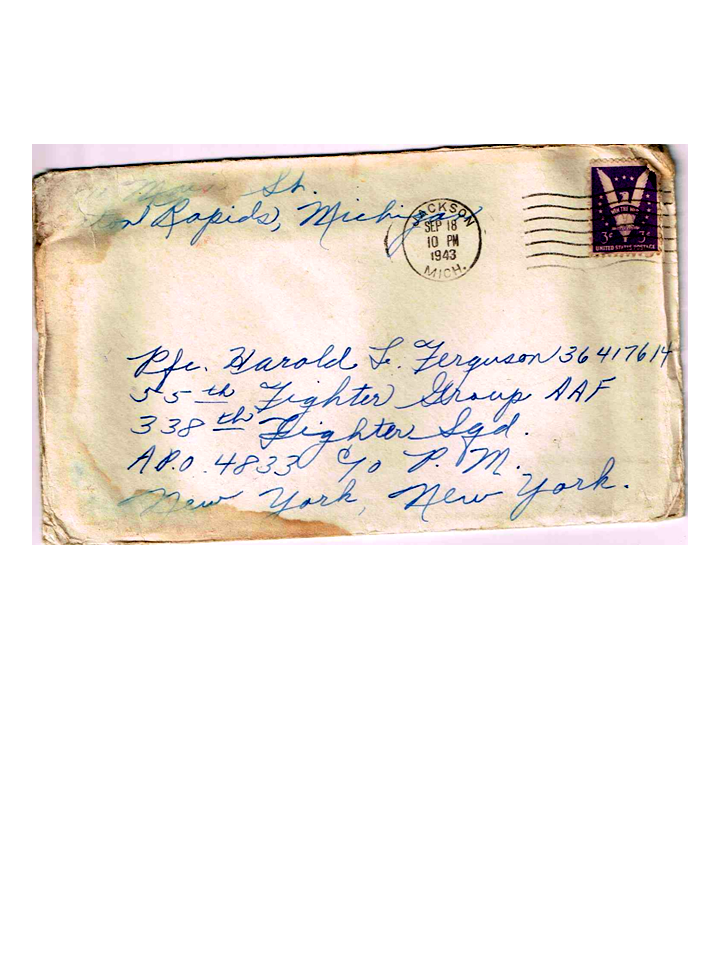 St.
Rapids, Michigan
JACKSON
SEP 18
10 PM
1943
MICH.
WIN THE WAR
3¢ 3¢
UNITED STATES POSTAGE
Pfc. Harold F. Ferguson 36417614
55th Fighter Group AAF
338th Fighter Sqd.
A.P.O. 4833 c/o P.M.
New York, New York.